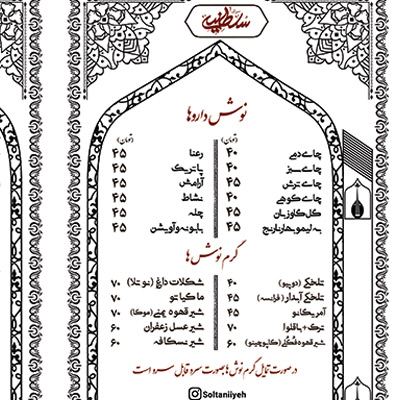 سلطانیه
نوش داروها
(تومان) (تومان)
چای دمی ۴۰ رعنا ۴۵
چای سبز ۴۰ پاتریک ۴۵
چای ترش ۴۵ آرامش ۴۵
چای کوهی ۴۰ نشاط ۴۵
گل گاوزبان ۴۵ چله ۴۵
به لیمو بهارنارنج ۴۵ بابونه و آویشن ۴۵
گرم نوش ها
تلخکی (دوپیو) ۴۰ شکلات داغ (نوتلا) ۷۰
تلخکی آبدار (فرانسه) ۴۵ ماکیاتو ۷۰
آمریکانو ۴۵ شیر قهوه یمنی (موکا) ۷۰
ترک + باقلوا ۷۰ شیر عسل زعفران ۶۰
شیر قهوه فسقلی (کاپوچینو) ۶۰ شیر نسکافه ۶۰
در صورت تمایل گرم نوش ها بصورت سرد قابل سرو است
Soltaniiyeh